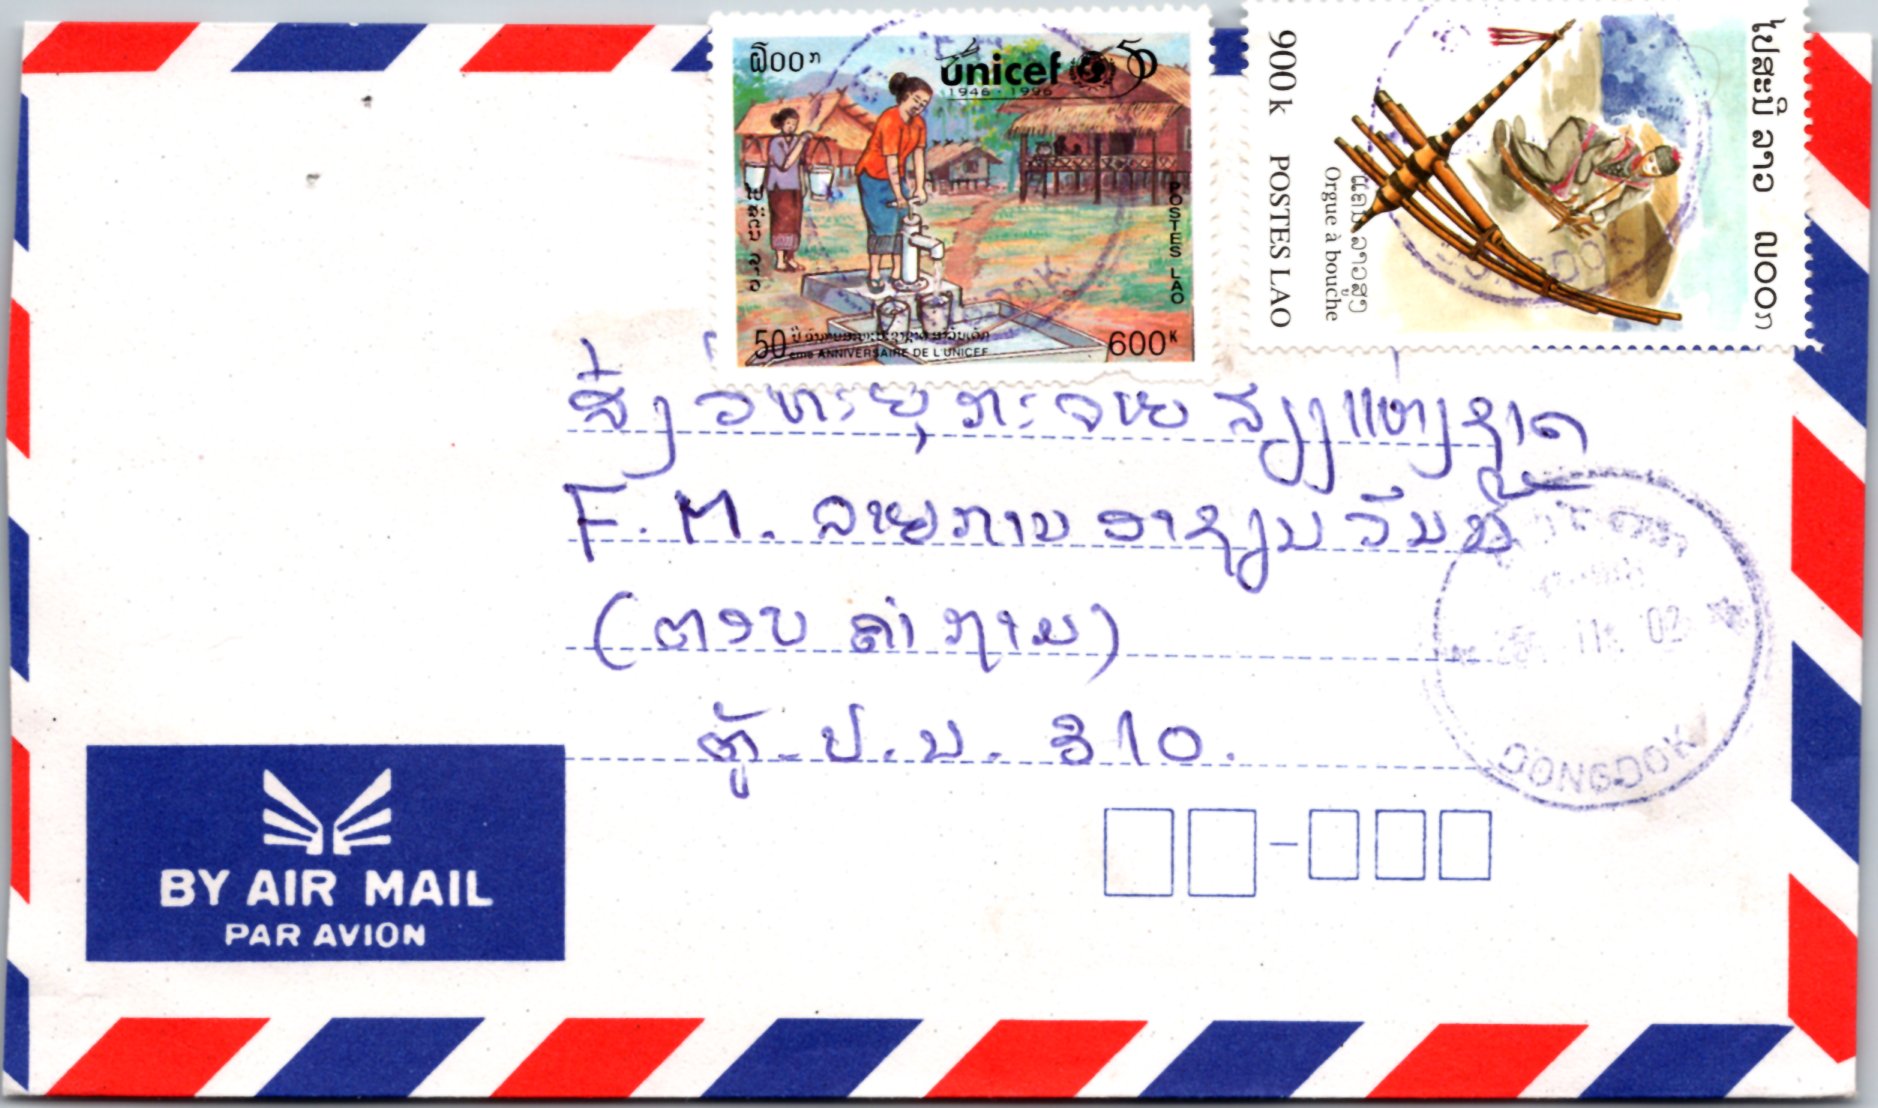 ໖໐໐ກ
unicef 50
1946 - 1996
ໄປສະນີ ລາວ
POSTES LAO
50 ປີ
ème ANNIVERSAIRE DE L'UNICEF
600K
900k POSTES LAO
Orgue à bouche
ແຄນ ລາວສູງ
ໄປສະນີ ລາວ ໙໐໐ກ
ສົ່ງ ວິທະຍຸ ກະຈາຍ ສຽງແຫ່ງຊາດ
F.M. ລາຍການ ອາຊຽນ ວັນນີ້
(ຕອບ ຄຳຖາມ)
ຕູ້.ປ.ນ. 310.
02
DONGDOK
BY AIR MAIL
PAR AVION